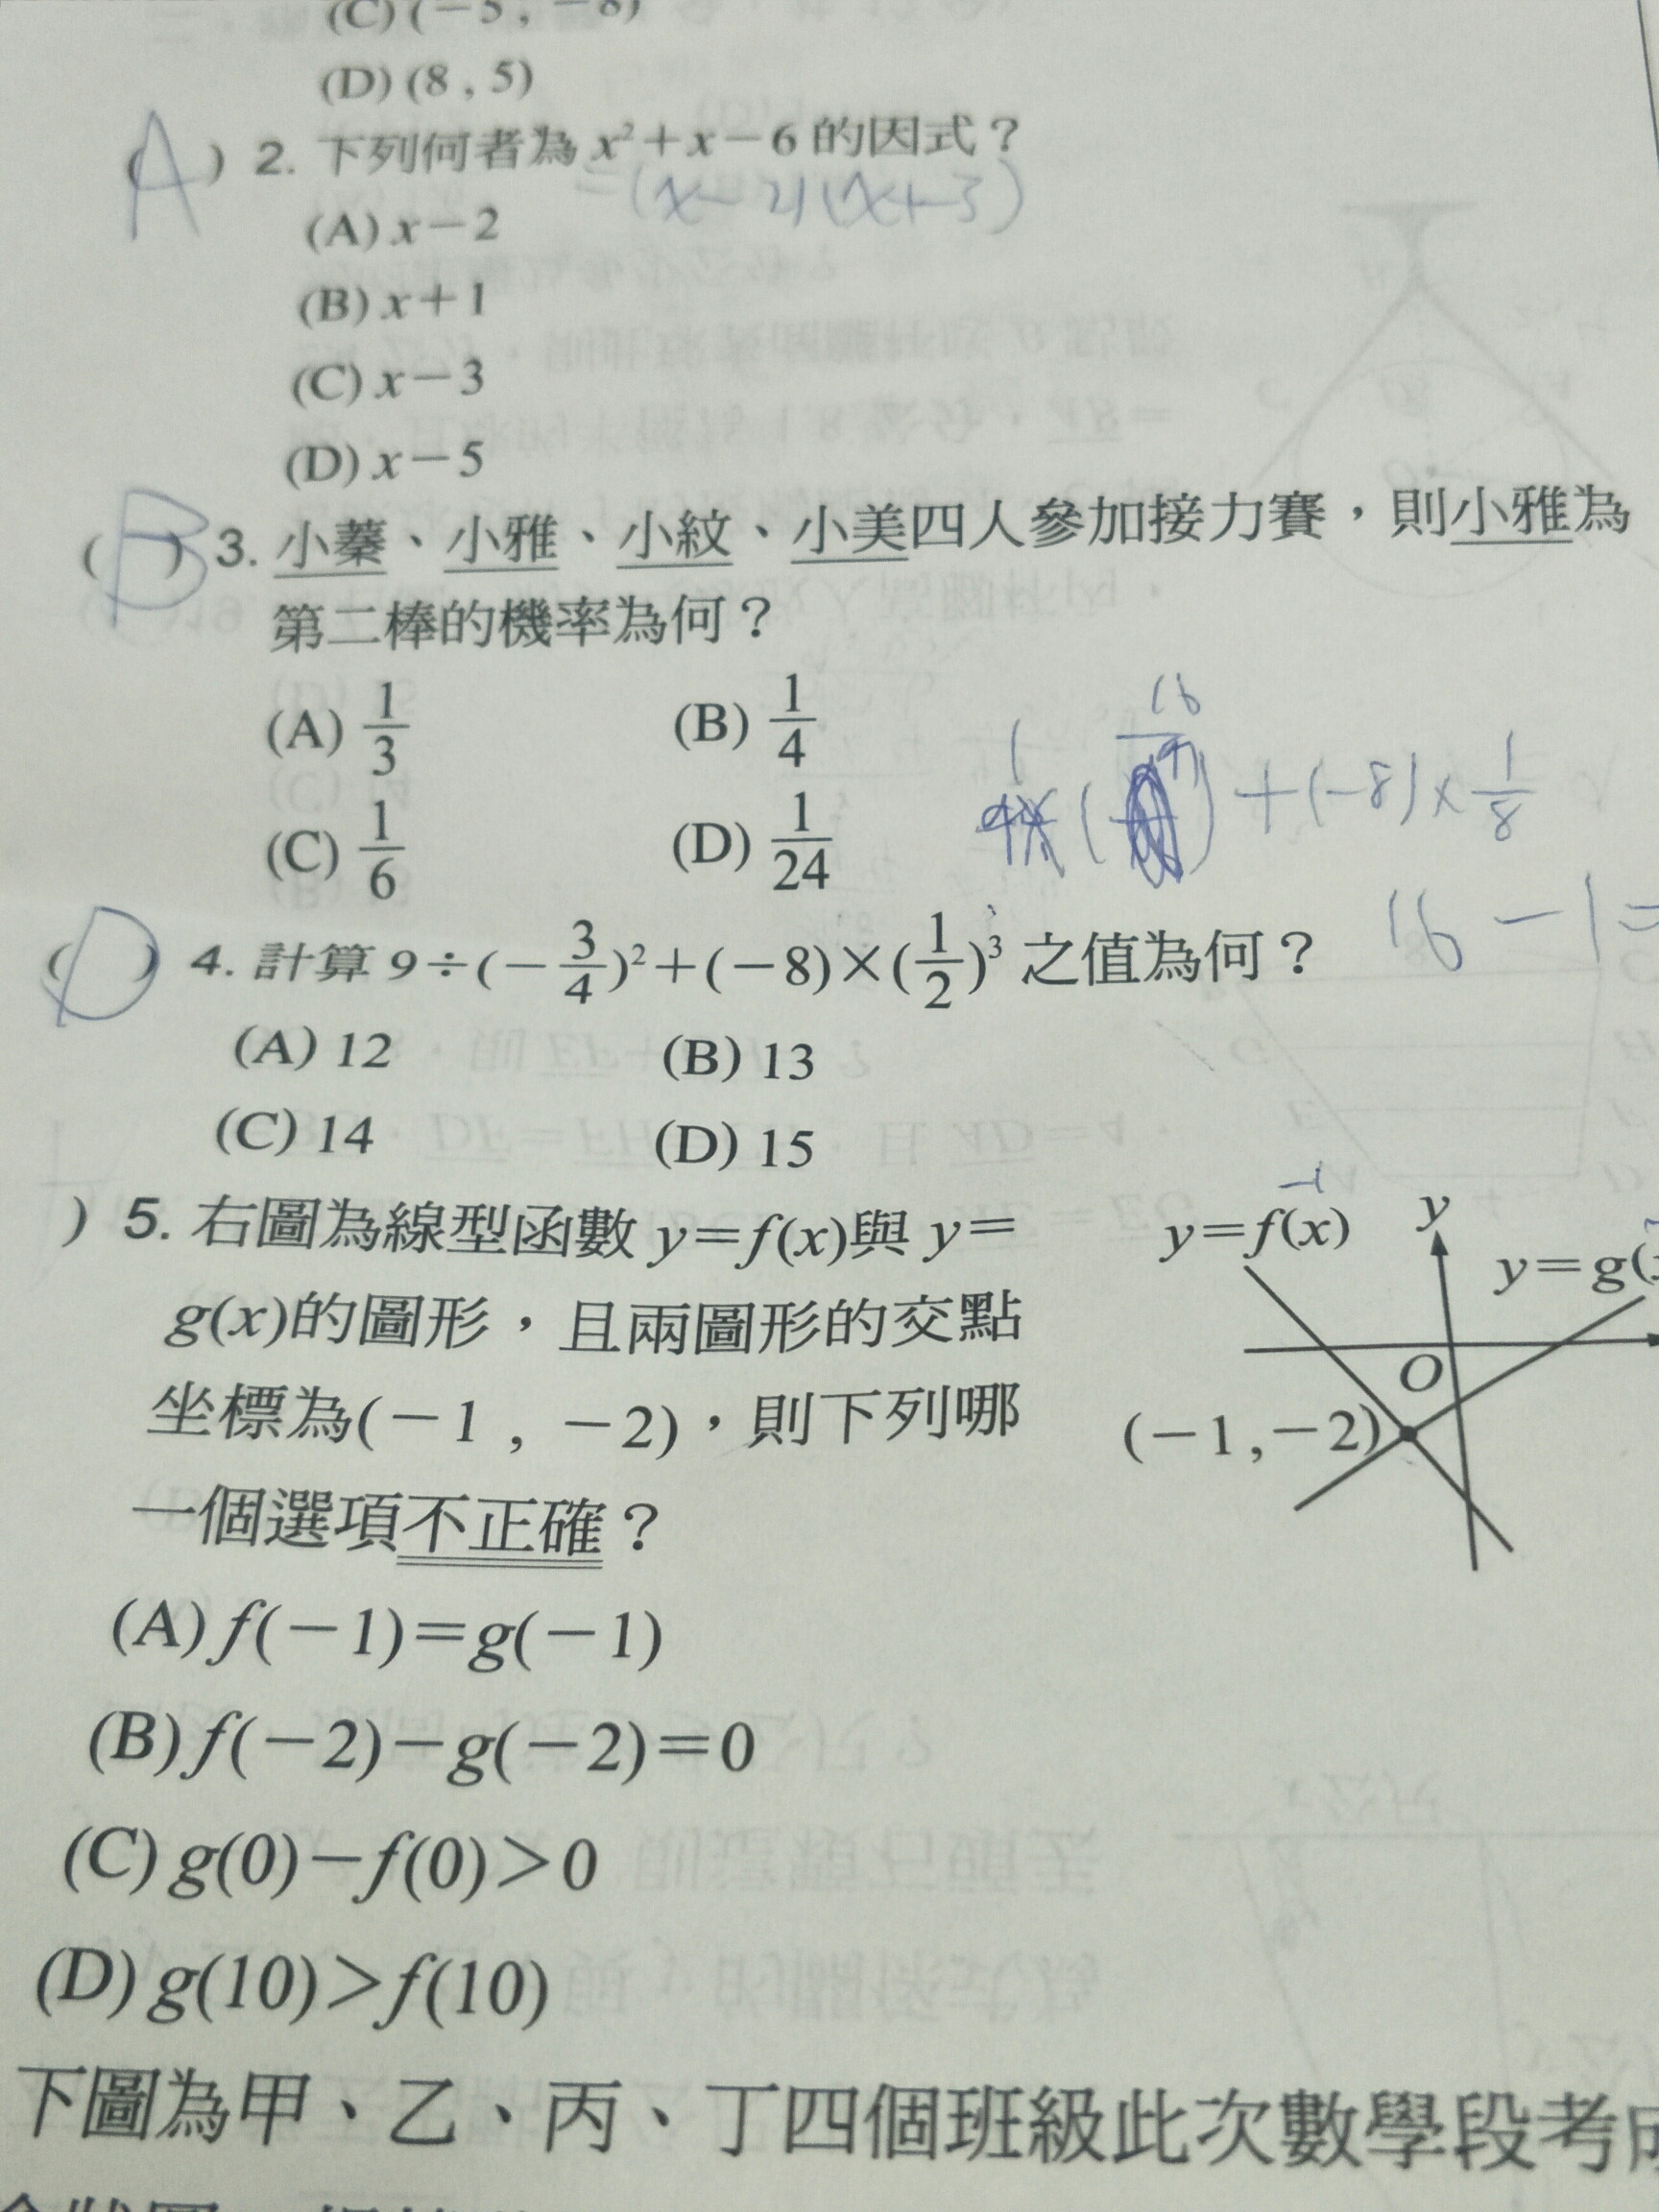 (C) (−5 , −8)
(D) (8 , 5)
(A) 2. 下列何者為 x²+x−6 的因式？
=(x−2)(x+3)
(A) x−2
(B) x+1
(C) x−3
(D) x−5
(B) 3. 小蓁、小雅、小紋、小美四人參加接力賽，則小雅為
第二棒的機率為何？
(A) 1/3 (B) 1/4
(C) 1/6 (D) 1/24
+(−8)×1/8
16−1=
(D) 4. 計算 9÷(−3/4)²+(−8)×(1/2)³ 之值為何？
(A) 12 (B) 13
(C) 14 (D) 15
) 5. 右圖為線型函數 y=f(x)與 y=
g(x)的圖形，且兩圖形的交點
坐標為(−1 , −2)，則下列哪
一個選項不正確？
−1
y=f(x) y y=g(
O
(−1,−2)
(A) f(−1)=g(−1)
(B) f(−2)−g(−2)=0
(C) g(0)−f(0)>0
(D) g(10)>f(10)
下圖為甲、乙、丙、丁四個班級此次數學段考